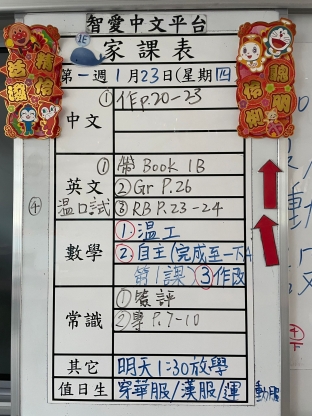 智愛中文平台
家課表
第一週1月23日(星期四
中文
①作p.20-23
英文
①帶 Book 1B
②Gr P.26
④温口試
③RB P.23-24
數學
①温工
②自主(完成至一下A
第1課)③作改
常識
①簽評
②專 P.7-10
其它
明天1:30放學
值日生
穿華服/漢服/運動服
活潑
精伶
聰明
伶俐